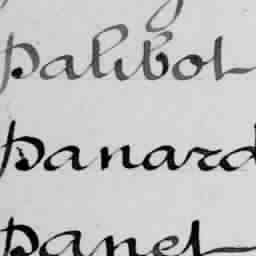 palibot
panard
panet